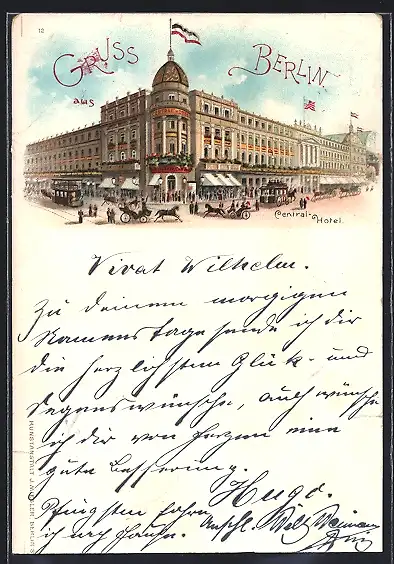 12
Gruss
aus
Berlin
Central-
Hotel.
Vivat Wilhelm.
Zu deinem morgigen
Namenstage sende ich dir
die herzlichsten Glück- und
Segenswünsche, auch wünsche
ich dir von Herzen eine
gute Besserung.
Hugo.
Pfingsten fahre
ich nach Hause.
KUNSTANSTALT J. MIESLER, BERLIN S.